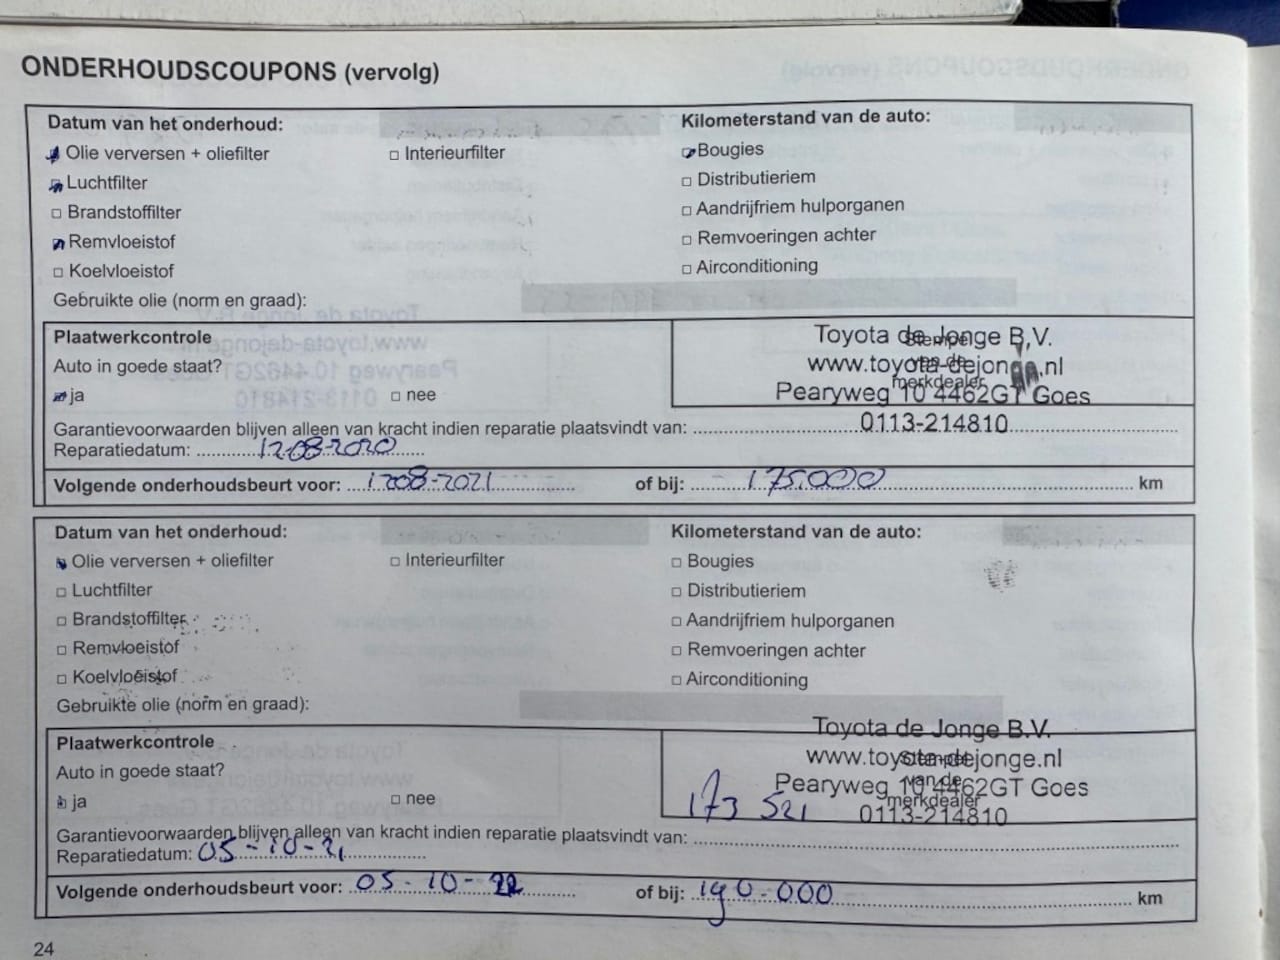 ONDERHOUDSCOUPONS (vervolg)
Datum van het onderhoud:
Kilometerstand van de auto:
Olie verversen + oliefilter
Interieurfilter
Bougies
Luchtfilter
Distributieriem
Brandstoffilter
Aandrijfriem hulporganen
Remvloeistof
Remvoeringen achter
Koelvloeistof
Airconditioning
Gebruikte olie (norm en graad):
Plaatwerkcontrole
Auto in goede staat?
ja
nee
Stempel
van de
merkdealer
Toyota de Jonge B.V.
www.toyota-dejonge.nl
Pearyweg 10 4462GT Goes
0113-214810
Garantievoorwaarden blijven alleen van kracht indien reparatie plaatsvindt van:
Reparatiedatum: 12-08-2020
Volgende onderhoudsbeurt voor: 1208-2021 of bij: 175.000 km
Datum van het onderhoud:
Kilometerstand van de auto:
Olie verversen + oliefilter
Interieurfilter
Bougies
Luchtfilter
Distributieriem
Brandstoffilter
Aandrijfriem hulporganen
Remvloeistof
Remvoeringen achter
Koelvloeistof
Airconditioning
Gebruikte olie (norm en graad):
Plaatwerkcontrole
Auto in goede staat?
ja
nee
Stempel
van de
merkdealer
Toyota de Jonge B.V.
www.toyota-dejonge.nl
Pearyweg 10 4462GT Goes
0113-214810
173 521
Garantievoorwaarden blijven alleen van kracht indien reparatie plaatsvindt van:
Reparatiedatum: 05-10-21
Volgende onderhoudsbeurt voor: 05-10-22 of bij: 190.000 km
24